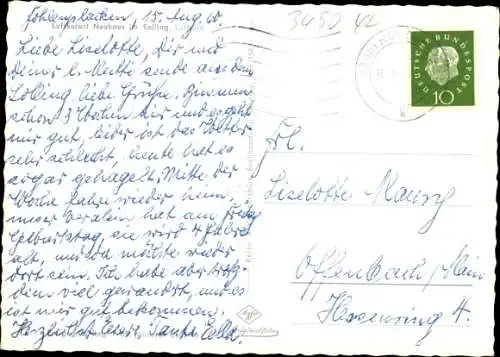 15. Aug. 60
3450
Luftkurort Neuhaus im Solling,
Liebe Liselotte, Dir und
Deiner l. Mutti sende aus dem
Solling liebe Grüße. Bin nun
schon 3 Wochen hier und es geht
mir gut, leider ist das Wetter
sehr schlecht, heute hat es
sogar gehagelt. Mitte der
Woche fahre wieder heim,
unser hat am
Geburtstag, sie wird 4 Jahre
alt, und da möchte wieder
dort sein. Ich habe aber trotz-
dem viel gewandert, und es
ist mir gut bekommen.
Herzlichst Tante Ella
DEUTSCHE BUNDESPOST
10
Frl.
Liselotte
Offenbach/Main
Hessenring 4.
Agfa